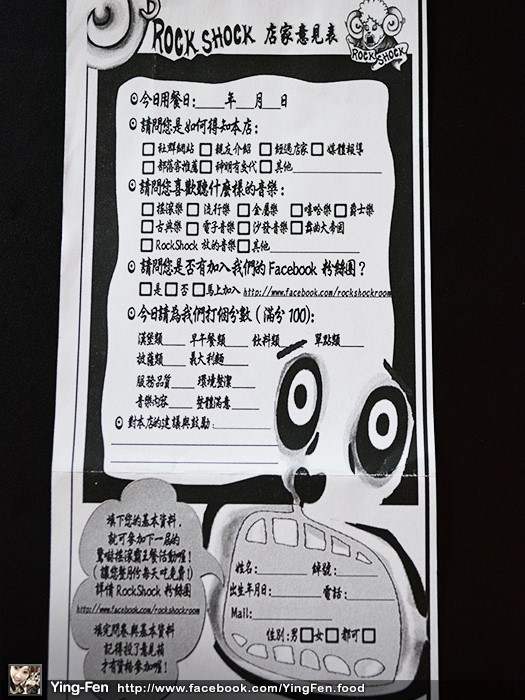 ROCK SHOCK 店家意見表
ROCK SHOCK
今日用餐日:____年__月__日
請問您是如何得知本店:
□社群網站 □親友介紹 □經過店家 □媒體報導
□部落客推薦 □神明有交代 □其他____________
請問您喜歡聽什麼樣的音樂:
□搖滾樂 □流行樂 □金屬樂 □嘻哈樂 □爵士樂
□古典樂 □電子音樂 □沙發音樂 □舞曲大帝國
□RockShock 放的音樂 □其他____________
請問您是否有加入我們的Facebook 粉絲團?
□是 □否 □馬上加入 http://www.facebook.com/rockshockroom
今日請為我們打個分數(滿分100):
漢堡類___ 早午餐類___ 飲料類___ 單點類___
披薩類___ 義大利麵___
服務品質___ 環境整潔___
音樂內容___ 整體滿意___
對本店的建議與鼓勵:________
填下您的基本資料,
就可參加下一屆的
驚嚇搖滾霸王餐活動喔!
(讓您整月份每天吃免費!)
詳情 RockShock 粉絲團
http://www.facebook.com/rockshockroom
填完問卷與基本資料
記得投了意見箱
才有資格參加喔!
姓名:________ 綽號:________
出生年月日:________ 電話:________
Mail:________
性別:男□女□都可□
Ying-Fen http://www.facebook.com/YingFen.food